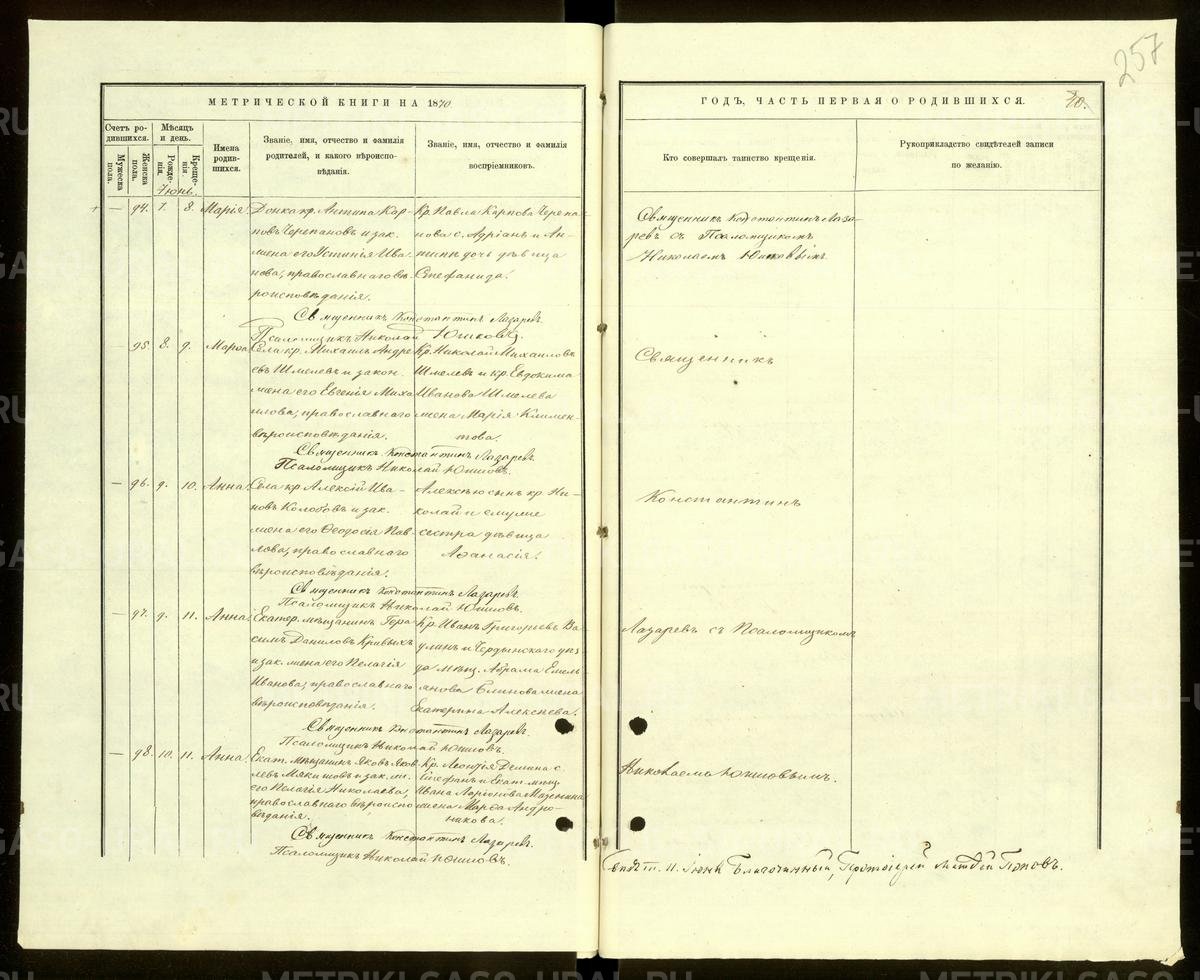 257
МЕТРИЧЕСКОЙ КНИГИ НА 1870
Счетъ родившихся.
Мужеска пола.
Женска пола.
Мѣсяцъ и день.
Рожденія.
Крещенія.
Имена родившихся.
Званіе, имя, отчество и фамилія родителей, и какого вѣроисповѣданія.
Званіе, имя, отчество и фамилія воспріемниковъ.
Іюнь.
— 94. 7. 8. Марія.
кр. Антипа Карповъ Черепановъ и зак.
жена его Устинія Иванова, православнаго вѣроисповѣданія.
Кр. Павла Карпова Черепанова с. Адріанъ и Антипы дочь дѣвица
Стефанида.
Священникъ Константинъ Лазаревъ.
Псаломщикъ Николай Юшковъ.
95. 8. 9. Марѳа
Села кр. Михаилъ Андреевъ Шмелевъ и закон.
жена его Евгенія Михаилова, православнаго
вѣроисповѣданія.
Кр. Николай Михаиловъ
Шмелевъ и кр. Евдокима
Иванова Шмелева
жена Марія Климентова.
Священникъ Константинъ Лазаревъ.
Псаломщикъ Николай Юшковъ.
— 96. 9. 10. Анна.
Села кр. Алексій Ивановъ Колобовъ и зак.
жена его Ѳеодосія Павлова, православнаго
вѣроисповѣданія.
Алексѣю сынъ кр. Николай и ему же
сестра дѣвица
Аѳанасія.
Священникъ Константинъ Лазаревъ.
Псаломщикъ Николай Юшковъ.
— 97. 9. 11. Анна.
Екатер. мѣщанинъ Герасимъ Даниловъ Кривыхъ
и зак. жена его Пелагія
Иванова, православнаго
вѣроисповѣданія.
Кр. Иванъ Григорьевъ
и Чердынскаго уѣзда мѣщ. Абрама Емельянова Блинова жена
Екатерина Алексѣева.
Священникъ Константинъ Лазаревъ.
Псаломщикъ Николай Юшковъ.
— 98. 10. 11. Анна.
Екат. мѣщанинъ Яковъ Яковлевъ Мякишовъ и зак. ж.
его Пелагія Николаева,
православнаго вѣроисповѣданія.
Кр. Леонтія Демина с.
Стефанъ и Екат. мѣщ.
Ивана Ларіонова
жена Марѳа Андроникова.
Священникъ Константинъ Лазаревъ.
Псаломщикъ Николай Юшковъ.
ГОДЪ, ЧАСТЬ ПЕРВАЯ О РОДИВШИХСЯ.
70.
Кто совершалъ таинство крещенія.
Рукоприкладство свидѣтелей записи
по желанію.
Священникъ Константинъ Лазаревъ съ Псаломщикомъ
Николаемъ Юшковымъ.
Священникъ
Константинъ
Лазаревъ съ Псаломщикомъ
Николаемъ Юшковымъ.
11. Іюня Благочинный, Протоіерей Матѳей Поповъ.
METRIKI.GASO-URAL.RU